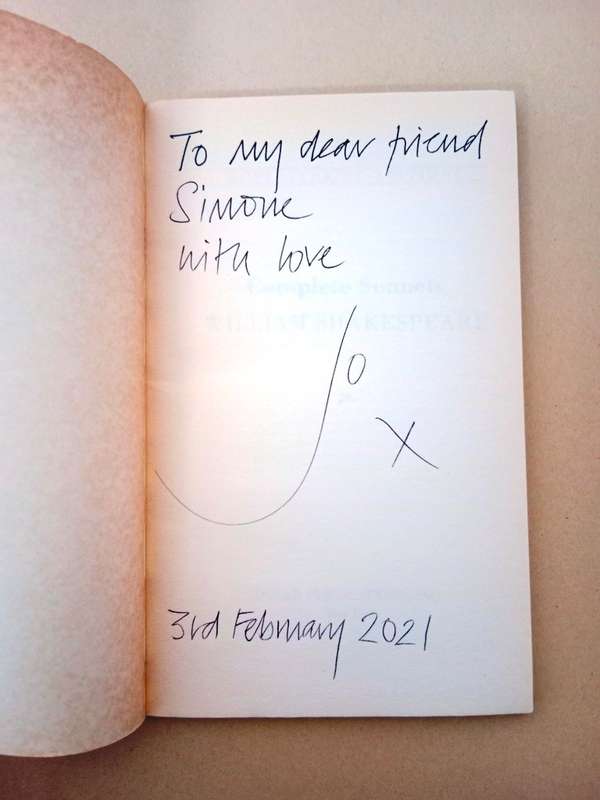 To my dear friend
Simone
with love
Jo
X
Complete Sonnets
WILLIAM SHAKESPEARE
3rd February 2021